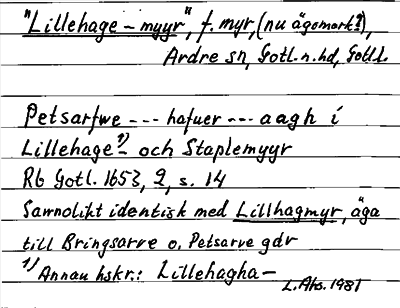 "Lillehage – myyr", f. myr, (nu ägomark?),
Ardre sn, Gotl. n. hd, Gotl. l.
Petsarfwe --- hafuer --- aagh i
Lillehage¹⁾– och Staplemyyr
Rb Gotl. 1653, 2, s. 14
Sannolikt identisk med Lillhagmyr, äga
till Bringsarve o. Petsarve gdr
¹⁾ Annan hskr.: Lillehagha –
L. Ahs. 1981